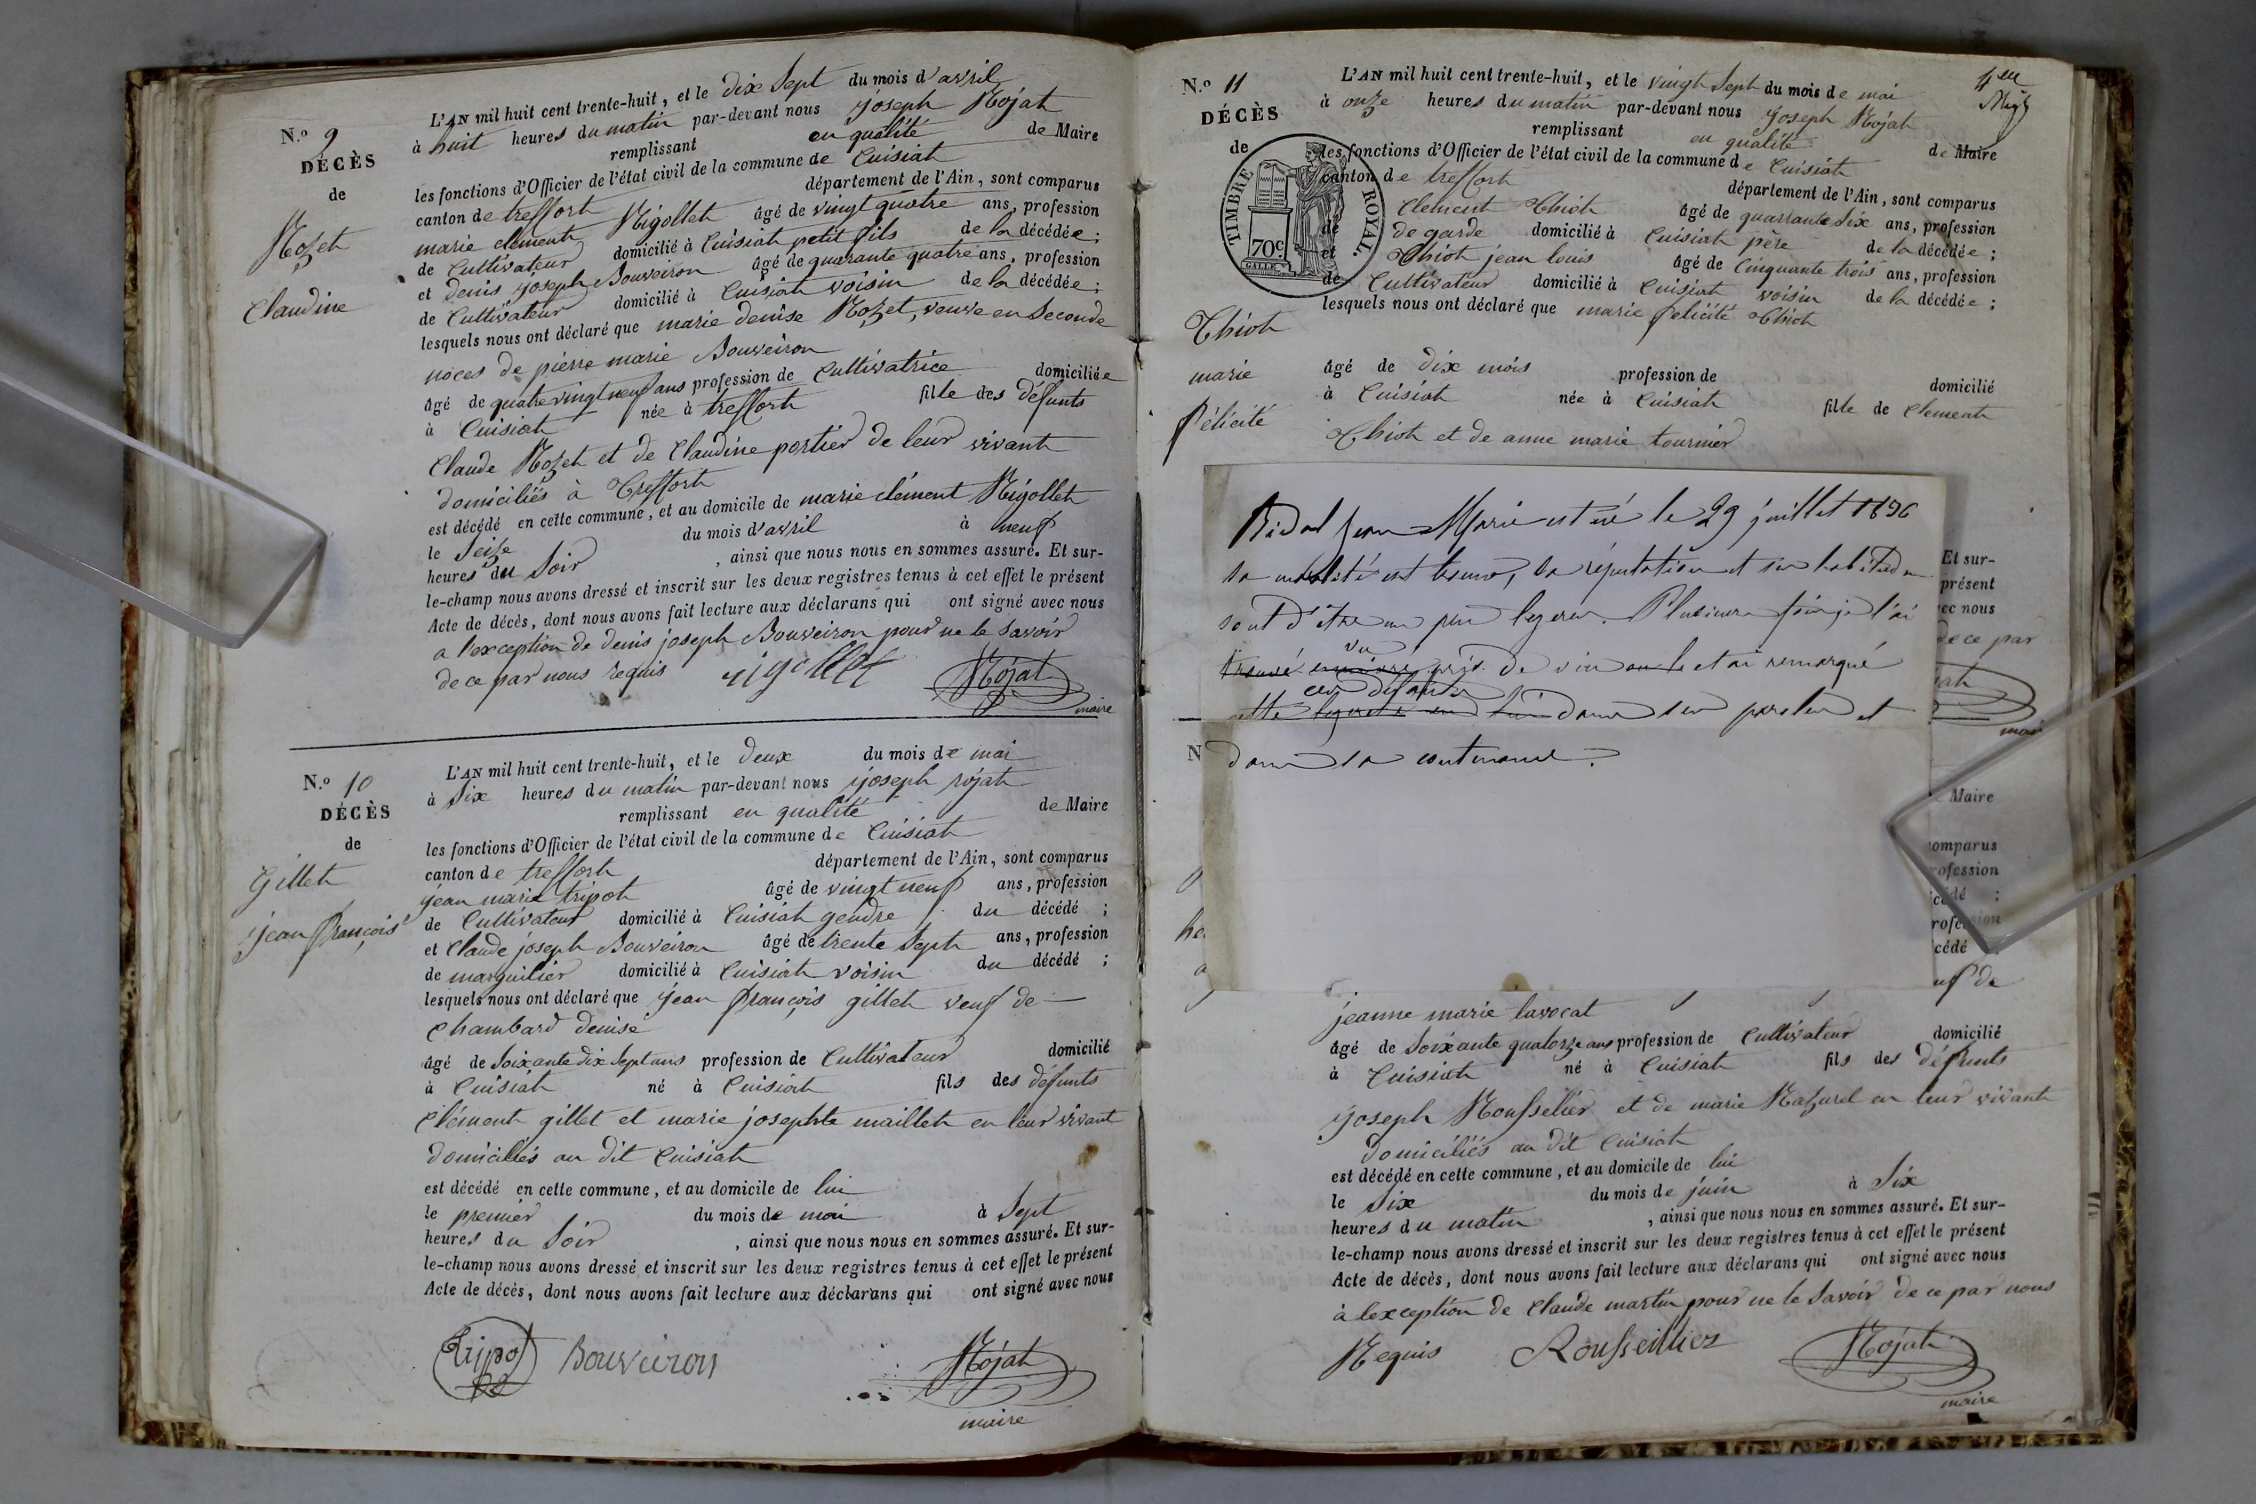 N.o 9
DÉCÈS
de
Rozet
Claudine
L'AN mil huit cent trente-huit, et le dix sept du mois d'avril
à huit heures du matin par-devant nous joseph Rojat
remplissant en qualité de Maire
les fonctions d'Officier de l'état civil de la commune de Cuisiat
canton de treffort département de l'Ain, sont comparus
marie clement Rigollet âgé de vingt quatre ans, profession
de Cultivateur domicilié à Cuisiat petit fils de la décédée;
et denis joseph Bouveiron âgé de quarante quatre ans, profession
de Cultivateur domicilié à Cuisiat voisin de la décédée;
lesquels nous ont déclaré que marie denise Rozet, veuve en Seconde
noces de pierre marie Bouveiron
âgé de quatre vingt neuf ans profession de Cultivatrice domiciliée
à Cuisiat née à treffort fille des défunts
Claude Rozet et de Claudine portier de leur vivant
domiciliés à Treffort
est décédé en cette commune, et au domicile de marie clément Rigollet
le Seize du mois d'avril à neuf
heures du Soir, ainsi que nous nous en sommes assuré. Et sur-
le-champ nous avons dressé et inscrit sur les deux registres tenus à cet effet le présent
Acte de décès, dont nous avons fait lecture aux déclarans qui ont signé avec nous
a l'exception de denis joseph Bouveiron pour ne le savoir
de ce par nous requis rigollet Rojat
maire
N.o 10
DÉCÈS
de
Gillet
jean françois
L'AN mil huit cent trente-huit, et le deux du mois de mai
à Six heures du matin par-devant nous joseph rojat
remplissant en qualité de Maire
les fonctions d'Officier de l'état civil de la commune de Cuisiat
canton de treffort département de l'Ain, sont comparus
jean marie tripot âgé de vingt neuf ans, profession
de Cultivateur domicilié à Cuisiat gendre du décédé;
et Claude joseph Bouveiron âgé de trente Sept ans, profession
de marguilier domicilié à Cuisiat voisin du décédé;
lesquels nous ont déclaré que jean françois gillet veuf de
Chambard denise
âgé de Soixante dix Sept ans profession de Cultivateur domicilié
à Cuisiat né à Cuisiat fils des défunts
Clément gillet et marie josephte maillet en leur vivant
domiciliés au dit Cuisiat
est décédé en cette commune, et au domicile de lui
le premier du mois de mai à Sept
heures du Soir, ainsi que nous nous en sommes assuré. Et sur-
le-champ nous avons dressé et inscrit sur les deux registres tenus à cet effet le présent
Acte de décès, dont nous avons fait lecture aux déclarans qui ont signé avec nous
Tripot Bouveiron Rojat
maire
N.o 11
DÉCÈS
de
TIMBRE ROYAL.
70c
Thiot
marie
félicité
L'AN mil huit cent trente-huit, et le vingt Sept du mois de mai
à onze heures du matin par-devant nous joseph Rojat
remplissant en qualité de Maire
les fonctions d'Officier de l'état civil de la commune de Cuisiat
canton de treffort département de l'Ain, sont comparus
Clement Thiot âgé de quarrante Six ans, profession
de de garde domicilié à Cuisiat père de la décédée;
et Thiot jean louis âgé de Cinquante trois ans, profession
de Cultivateur domicilié à Cuisiat voisin de la décédée;
lesquels nous ont déclaré que marie felicité Thiot
âgé de dix mois profession de domicilié
à Cuisiat née à Cuisiat fille de Clement
Thiot et de anne marie tournier
Jean Marie est né le 29 juillet 1896
sa moralité est bonne, sa réputation et
sont d'être un peu legeres. Plusieurs fois je l'ai
trouvé vu pris de vin et ai remarqué
cette dans ses paroles et
dans sa contenance.
Et sur-
présent
ec nous
de ce par
mai
N
Maire
omparus
rofession
cédé ;
cédé
uf de
jeanne marie lavocat
âgé de Soixante quatorze ans profession de Cultivateur domicilié
à Cuisiat né à Cuisiat fils des défunts
joseph Rousselier et de marie Mazurel en leur vivant
domiciliés au dit Cuisiat
est décédé en cette commune, et au domicile de lui
le Six du mois de juin à Six
heures du matin, ainsi que nous nous en sommes assuré. Et sur-
le-champ nous avons dressé et inscrit sur les deux registres tenus à cet effet le présent
Acte de décès, dont nous avons fait lecture aux déclarans qui ont signé avec nous
à l'exception de Claude martin pour ne le Savoir de ce par nous
Requis Rousseillier Rojat
maire